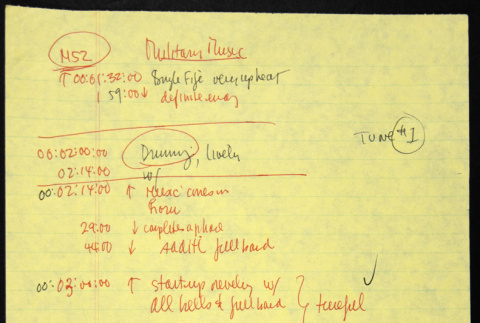 M52 Military Music
↑ 00:01:32:00 Single Fife very upbeat
59:00 ↓ definite end
TUNE #1
00:02:00:00 Drums, lively
02:14:00 w/
00:02:14:00 ↑ Music comes in
29:00 ↓ completes a phrase
44:00 ↓ Add in full band
00:03:00:00 ↑ start up revelry w/
all bells & full band } tuneful